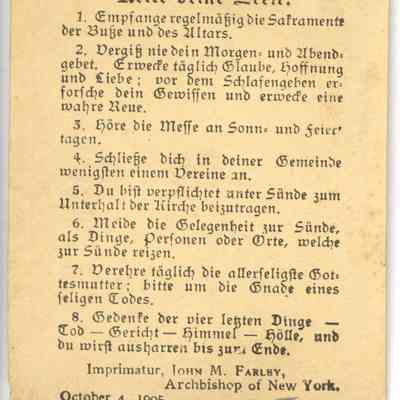 Rette deine Seele.
1. Empfange regelmäßig die Sakramente
der Buße und des Altars.
2. Vergiß nie dein Morgen- und Abend-
gebet. Erwecke täglich Glaube, Hoffnung
und Liebe; vor dem Schlafengehen er-
forsche dein Gewissen und erwecke eine
wahre Reue.
3. Höre die Messe an Sonn- und Feier-
tagen.
4. Schließe dich in deiner Gemeinde
wenigsten einem Vereine an.
5. Du bist verpflichtet unter Sünde zum
Unterhalt der Kirche beizutragen.
6. Meide die Gelegenheit zur Sünde,
als Dinge, Personen oder Orte, welche
zur Sünde reizen.
7. Verehre täglich die allerseligste Got-
tesmutter; bitte um die Gnade eines
seligen Todes.
8. Gedenke der vier letzten Dinge —
Tod — Gericht — Himmel — Hölle, und
du wirst ausharren bis zum Ende.
Imprimatur, JOHN M. FARLEY,
Archbishop of New York.
October 4, 1905